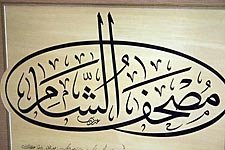 مصحف الشام